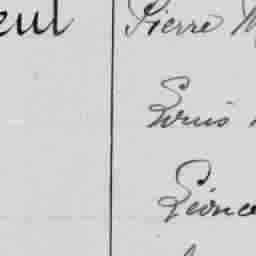 eul Pierre M
Louis
Léonce